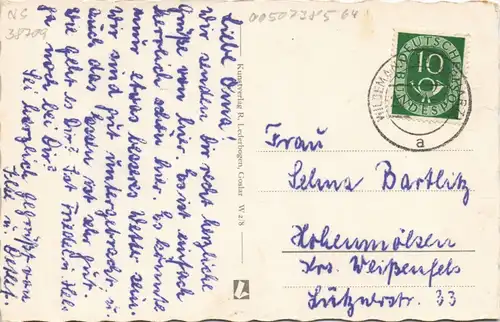 NS
38709
00507385 64
Liebe Omma!
Wir senden Dir recht herzliche
Grüße von hier. Es ist einfach
herrlich schön hier. Es könnte
nur etwas besseres Wetter sein.
Wir sind gut untergebracht u.
auch das Essen ist sehr gut.
Wie geht es Dir? Ist Friedel u. Hele
noch bei Dir?
Sei herzlich gegrüßt von
Kunstverlag R. Lederbogen, Goslar W 2/8
DEUTSCHE BUNDESPOST
10
WILDEMANN
a
Frau
Selma Bartlitz
Hohenmölsen
Krs. Weißenfels
Lütznerstr. 33